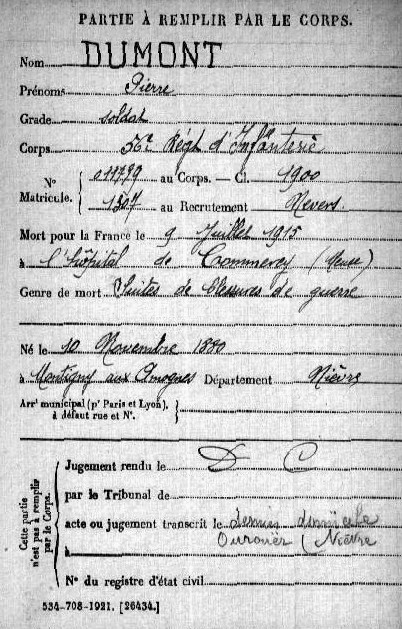 PARTIE À REMPLIR PAR LE CORPS.
Nom DUMONT
Prénoms Pierre
Grade soldat
Corps 56e Régt d'Infanterie
N° Matricule. 011779 au Corps. — Cl. 1900
1307 au Recrutement Nevers
Mort pour la France le 9 Juillet 1915
à l'hôpital de Commercy (Meuse)
Genre de mort Suites de blessures de guerre
Né le 10 Novembre 1880
à Montigny aux Amognes Département Nièvre
Arrt municipal (pr Paris et Lyon), à défaut rue et N°.
Cette partie n'est pas à remplir par le Corps.
Jugement rendu le D C
par le Tribunal de
acte ou jugement transcrit le dernier domicile
à Ourouër (Nièvre
N° du registre d'état civil
534-708-1921. [26434.]